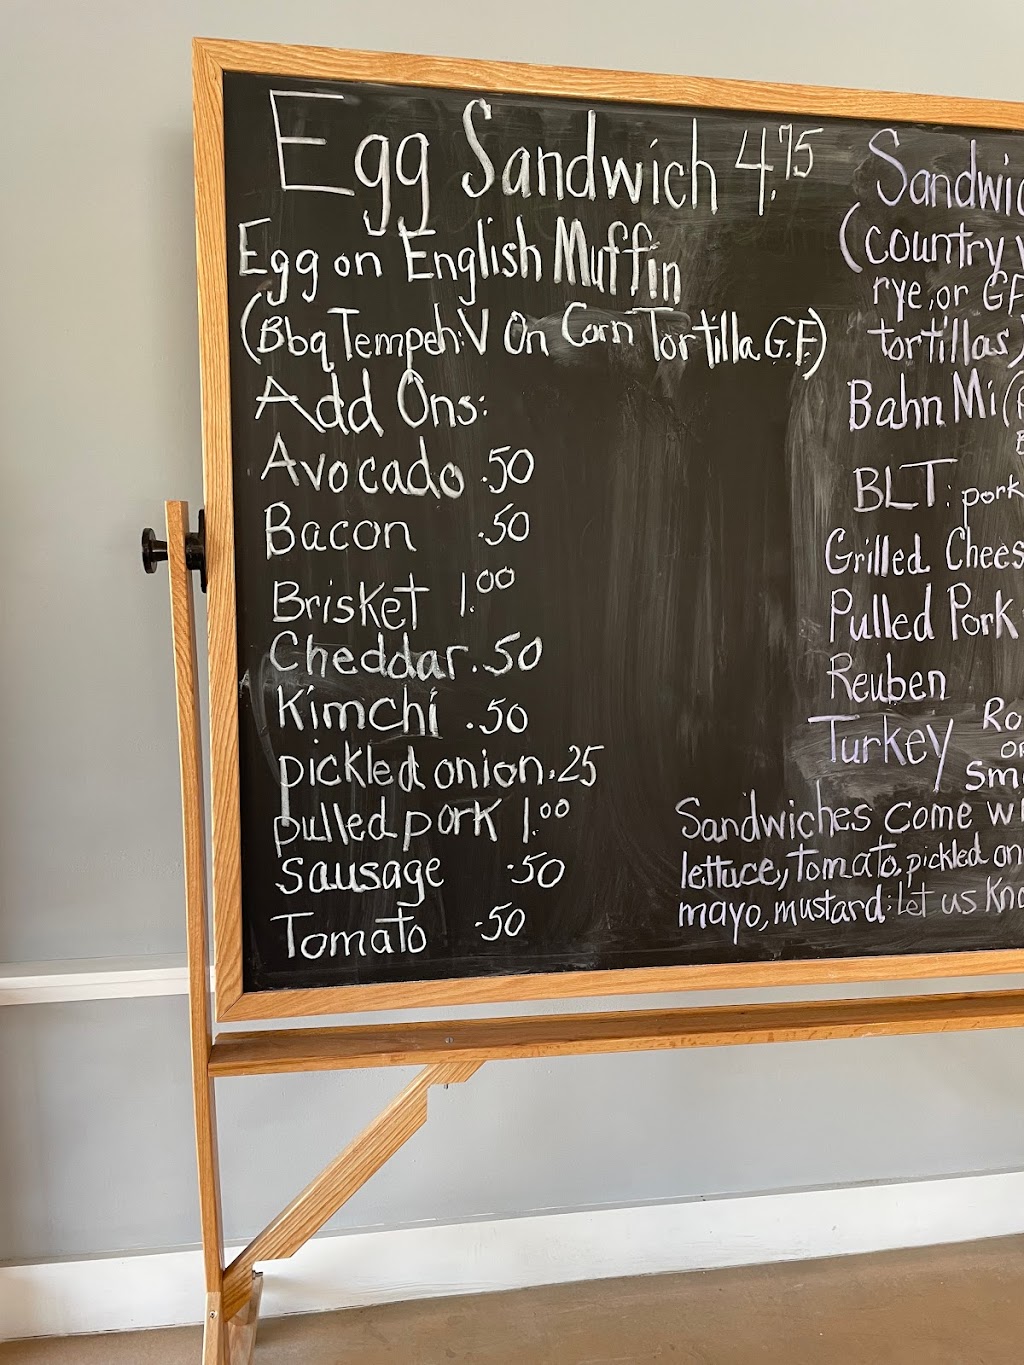 Egg Sandwich 4.75
Egg on English Muffin
(Bbq Tempeh:V On Corn Tortilla G.F.)
Add Ons:
Avocado .50
Bacon .50
Brisket 1.00
Cheddar .50
Kimchi .50
pickled onion .25
pulled pork 1.00
Sausage .50
Tomato .50
(country
rye, or GF
tortillas)
Bahn Mi (
BLT: pork
Grilled
Pulled Pork
Reuben
Turkey
or
Sandwiches come
lettuce, Tomato, pickled
mayo, mustard: let us